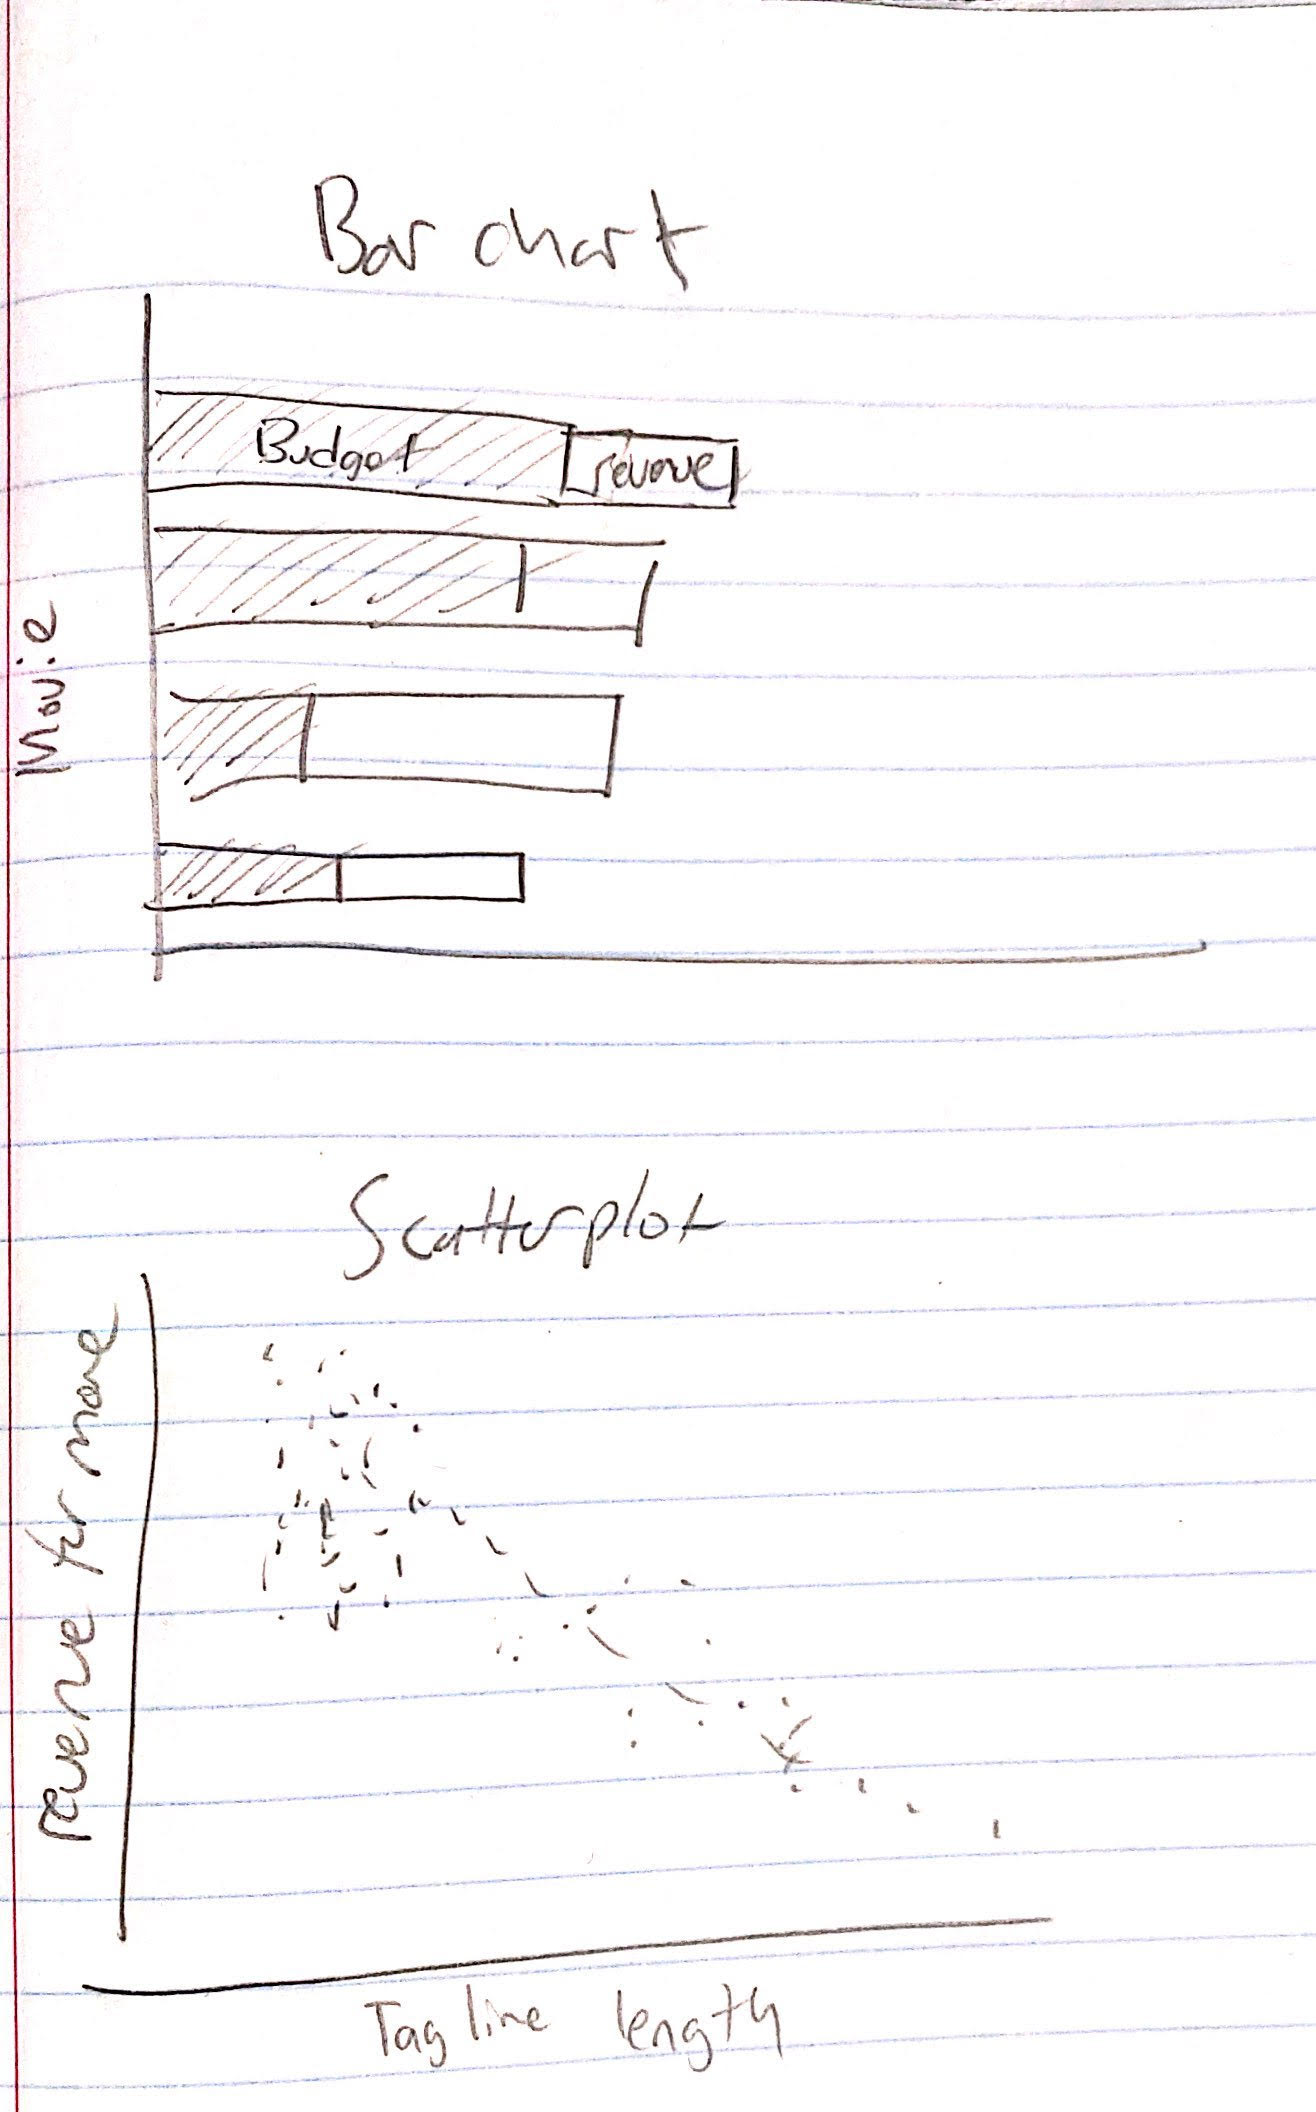 Bar chart
Budget
Movie
Scatterplot
revenue for movie
Tagline length